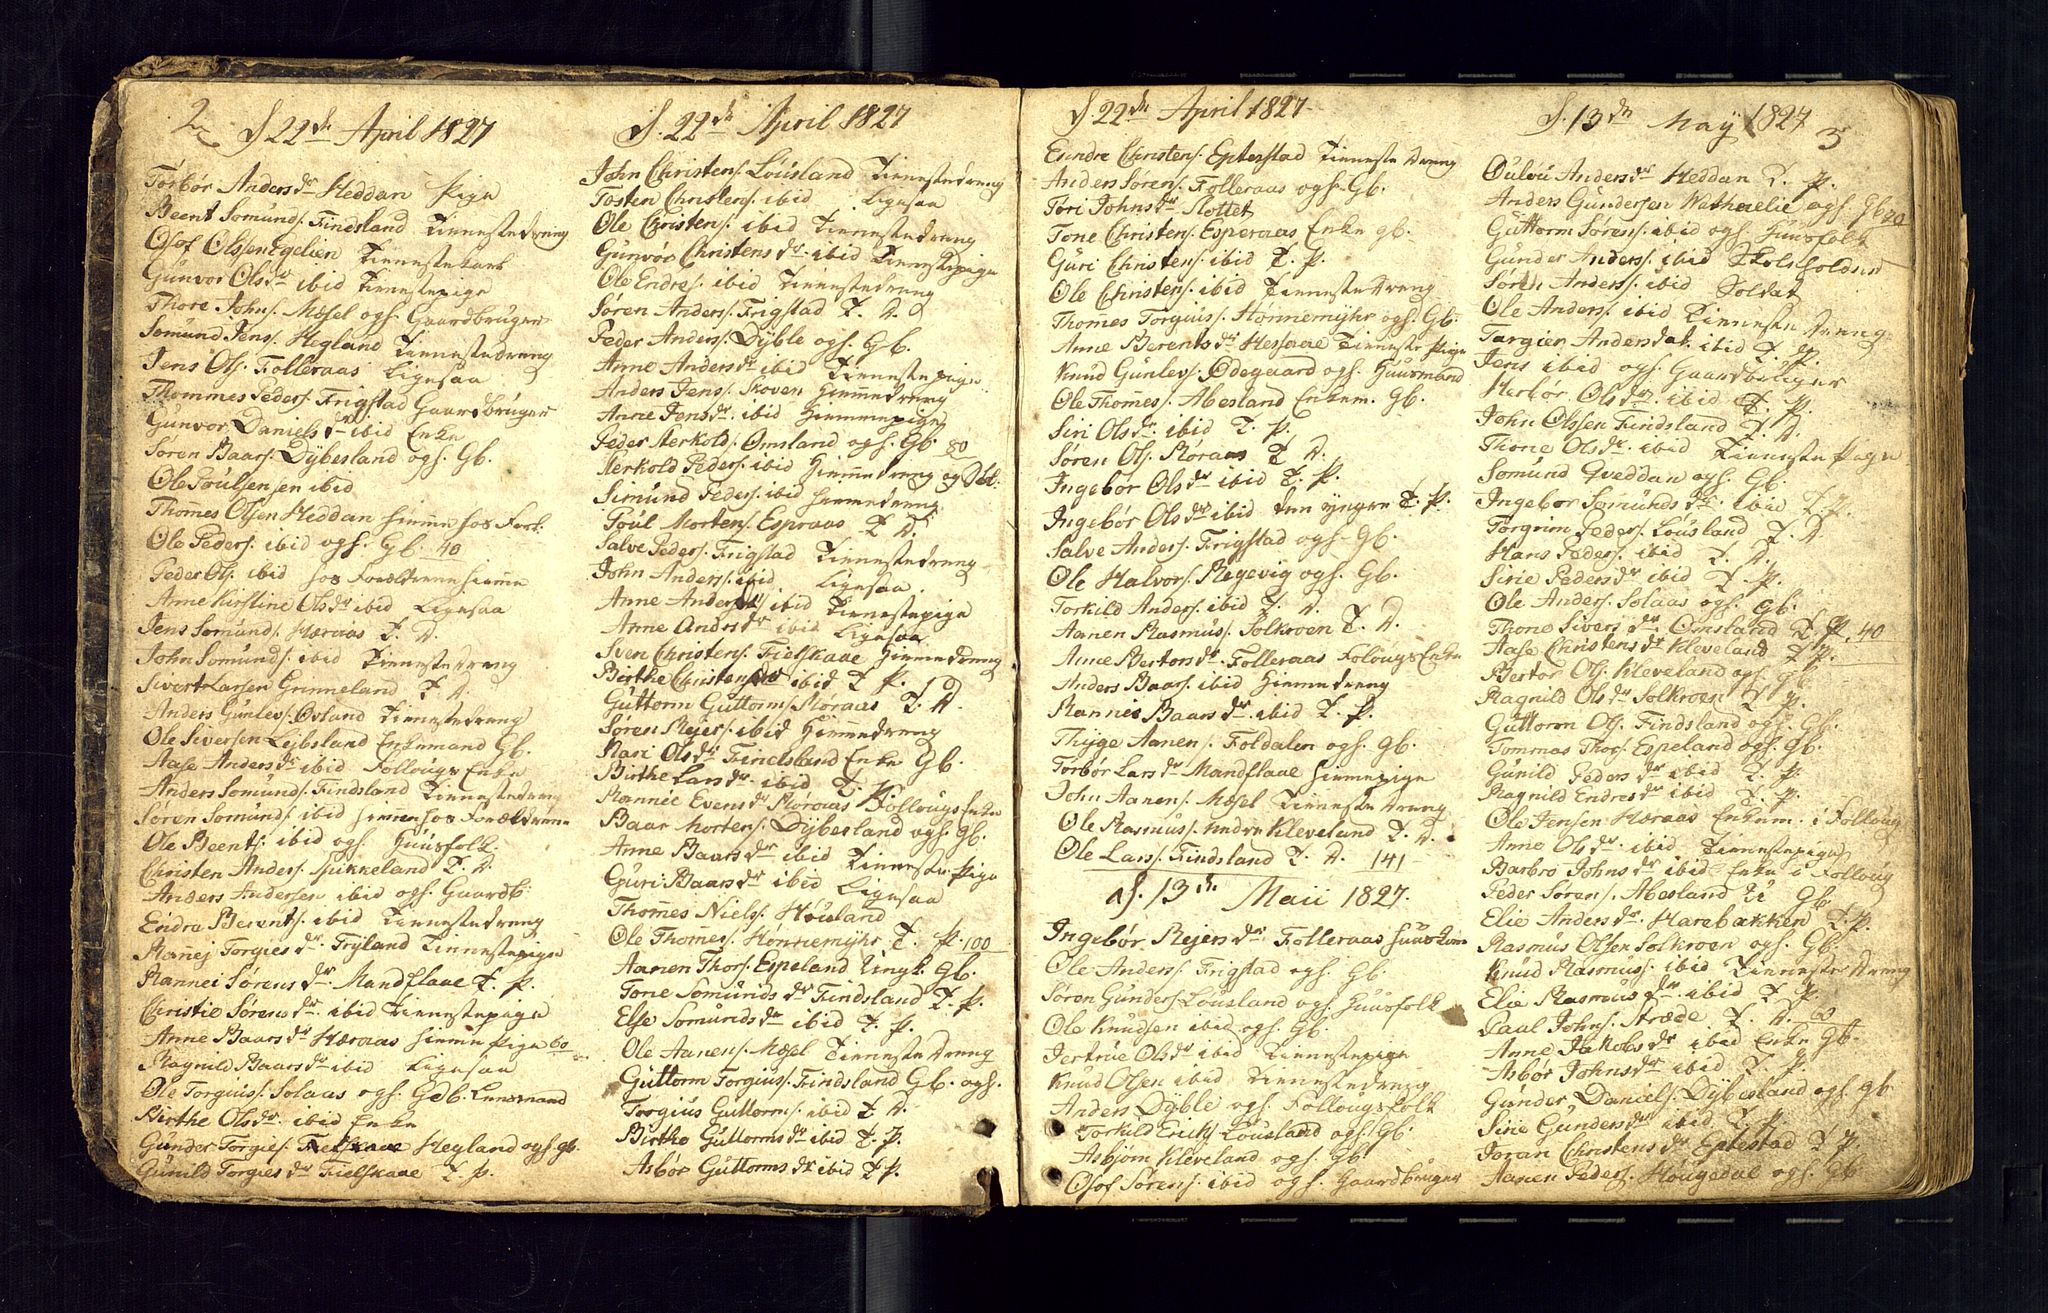 2
d 22de April 1827
Torbør Andersdr Heddan Piga
Beent Somunds. Findsland Tienestedreng
Osof Olsen Egelien Tienestekarl
Gunvor Olsdr ibid Tienestepige
Thore Johns. Mæsel ogs. Gaardbruger
Somund Jens. Hegland Tienestedreng
Jens Ols. Folleraas Ligesaa
Thommes Peders. Frigstad Gaardbruger
Gunvor Daniels dr ibid Enke
Søren Baars. Dybesland ogs. Gb.
Ole Poulsensen ibid
Thomes Olsen Heddan hieme hos Foræl.
Ole Peders. ibid ogs. Gb. 40
Peder Ols. ibid hos Forældrene hieme
Anne Kirstine Olsdr ibid Ligesaa
Jens Somunds. Høraas T. D.
John Somunds. ibid Tienestedreng
Sivert Larsen Grinneland T. D.
Anders Gunlevs. Øvland Tienestedreng
Ole Siversen Leibsland Enkemand Gb.
Aase Andersdr ibid Follougs Enke
Anders Somunds. Findsland Tienestedreng
Søren Somunds. ibid hieme hos Forældrene
Ole Beents. ibid ogs. Huusfolk
Christen Anders. Spikkeland T. D
Anders Andersen ibid ogs. Gaardb.
Endre Berents. ibid Tienestedreng
Rannej Torgiesdr Fryland Tienestepige
Rannei Sørensdr Mandflaae T. P.
Christie Sørensdr ibid Tienestepige
Anne Baarsdr Høraas hieme Pige 60
Ragnild Baarsdr ibid Ligesaa
Ole Torgius. Solaas ogs. Gdb. Lensmand
Birthe Olsdr ibid Enke
Gunder Torgies. Hegland ogs. gb.
Gunild Torgiesdr Fielskaae T. P.
d. 22de April 1827
John Christens. Lousland Tienestedreng
Tosten Christens. ibid Ligesaa
Ole Christens. ibid Tienestedreng
Gunvør Christensdr. ibid Tienestepige
Ole Endres. ibid Tienestedreng
Søren Anders. Frigstad T. D.
Peder Anders. Dyble ogs. Gb.
Anne Andersdr ibid Tienestepige
Anders Jens. Skoven Hiemedreng
Anne Jensdr. ibid Hiemmepige
Peder Nerkold. Omsland ogs. Gb. 80
Nerkold Peders. ibid Hiemedreng og
Simund Peders. ibid hiemedreng
Poul Mortens. Espraas T D.
Salve Peders. Frigstad Tienestedreng
John Anders. ibid Ligesaa.
Anne Andersdr ibid Tienestepige
Anne Andrsdr ibid Ligesaa
Sven Christens. Fielskaae Hiemedreng
Birthe Christensdr ibid T. P.
Guttorm Guttorms. Moraas T. D.
Søren Rejers. ibid Hiemedreng
Kari Olsdr Findsland Enke Gb.
Birthe Larsdr ibid T. P.
Rannie Evensdr Røraas Follougs Enke
Baar Mortens. Dybesland ogs. gb.
Anne Baarsdr ibid Tieneste Pige
Guri Baarsdr ibid Ligesaa
Thommes Niels. Houland
Ole Thommes. Hønnemyhr T. P. 100
Aanen Thors. Espeland Gb.
Tone Somundsdr Findsland T. P.
Else Somundsdr ibid T. P.
Ole Aanens. Mæsel Tieneste Dreng
Guttorm Torgius. Findsland Gb. ogs.
Torgius Guttorms. ibid T. D.
Birthe Guttormsdr ibid T. P.
Asbør Guttormsdr ibid T P.
d. 22de April 1827
Eindre Christens. Eptestad Tieneste Dreng
Anders Sørens. Folleraas ogs. Gb.
Tori Johnsdr Slottet
Tone Christens. Esperaas Enke gb.
Guri Christens. ibid T. P.
Ole Christens. ibid Tieneste Dreng
Thommes Torgius. Hønnemyhr ogs. Gb.
Anne Berentsdr Hesaae Tieneste Pige
Knud Gunlevs. Ødegaard ogs. Huusmand
Ole Thomes. Abesland Enkem. Gb.
Siri Olsdr. ibid T. P.
Søren Ols. Røraas T D.
Ingebør Olsdr ibid T. P.
Ingebør Olsdr ibid den yngre T. P.
Salve Anders. Frigstad ogs. Gb.
Ole Halvors. Regevig ogs. Gb.
Torkild Anders. ibid T. D.
Aanen Rasmus. Solkroen T. D.
Anne Bertorsdr. Folleraas Follougs Enke
Anders Baars. ibid Hiemedreng
Rannie Baarsdr. ibid T. P.
Thyge Aanens. Foldalen ogs. gb.
Torbør Larsdr Mandflaae hiemepige
John Aanens. Mæsel Tieneste Dreng
Ole Rasmus. nedre Kleveland T. D.
Ole Lars. Findsland T. D. 141
d. 13de Maii 1827.
Ingebør Rejersdr Folleraas Huuskone
Ole Anders. Frigstad ogs. Gb.
Søren Gunders. Lousland ogs. Huusfolk
Ole Knudsen ibid ogs. Gb.
Jertrue Olsdr ibid Tienestepige
Knud Olsen ibid Tienestedreng
Anders Dyble ogs. Follougsfolk
Torkild Ericks. Lousland ogs. Gb.
Asbjorn Kleveland ogs. Gb.
Osof Sørens. ibid ogs. Gaardbruger
d. 13de May 1827
3
Oulou Andersdr Heddan T. P.
Anders Gundersen Watnelie ogs. Gb 20
Guttorm Sørens. ibid ogs. Huusfolk
Gunder Anders. ibid Skoleholder
Søren Anders. ibid Soldat
Ole Anders. ibid Tieneste Dreng
Targier Andersdat. ibid T. P.
Jens ibid ogs. Gaardbruger
Herbør Olsdr. ibid T. P.
John Olssen Findsland T. D.
Thone Olsdr. ibid Tieneste Pige
Somund Qveddan ogs. Gb.
Ingebor Somundsdr. ibid T. P.
Torgrim Peders. Lousland T. D
Hans Peders. ibid T. D.
Sirie Pedersdr ibid T. P.
Ole Anders. Solaas ogs. gb.
Thone Siversdr Omsland T. P. 40
Aase Christensdr Kleveland T P.
Bertor Ols. Kleveland ogs. gb.
Ragnild Olsdr Solkroen T. P.
Guttorm Ols. Findsland ogs. Gb.
Tommas Thors. Espeland ogs. Gb.
Gunild Pedersdr ibid T. P.
Ragnild Endresdr ibid T. P.
Ole Jensen Høraas Enkem. i Folloug
Anne Olsdr. ibid Tienestepige
Barbro Johnsdr ibid Enke i Follog
Peder Sørens. Abesland Gb.
Elie Andersdr. Harebakken T. P.
Rasmus Olsen Solkroen ogs. Gb.
Knud Rasmus. ibid Tieneste Dreng
Elie Rasmusdr. ibid T P.
Paal Johns. Stræde T. D. 60
Anne Jakobsdr ibid Enke Gb.
Asbør Johnsdr ibid T. P.
Gunder Daniels. Dybesland ogs gb.
Sirie Gundersdr ibid T. P.
Joran Christensdr Eptestad T P.
Aanen Peders. Hougedal ogs. Gb